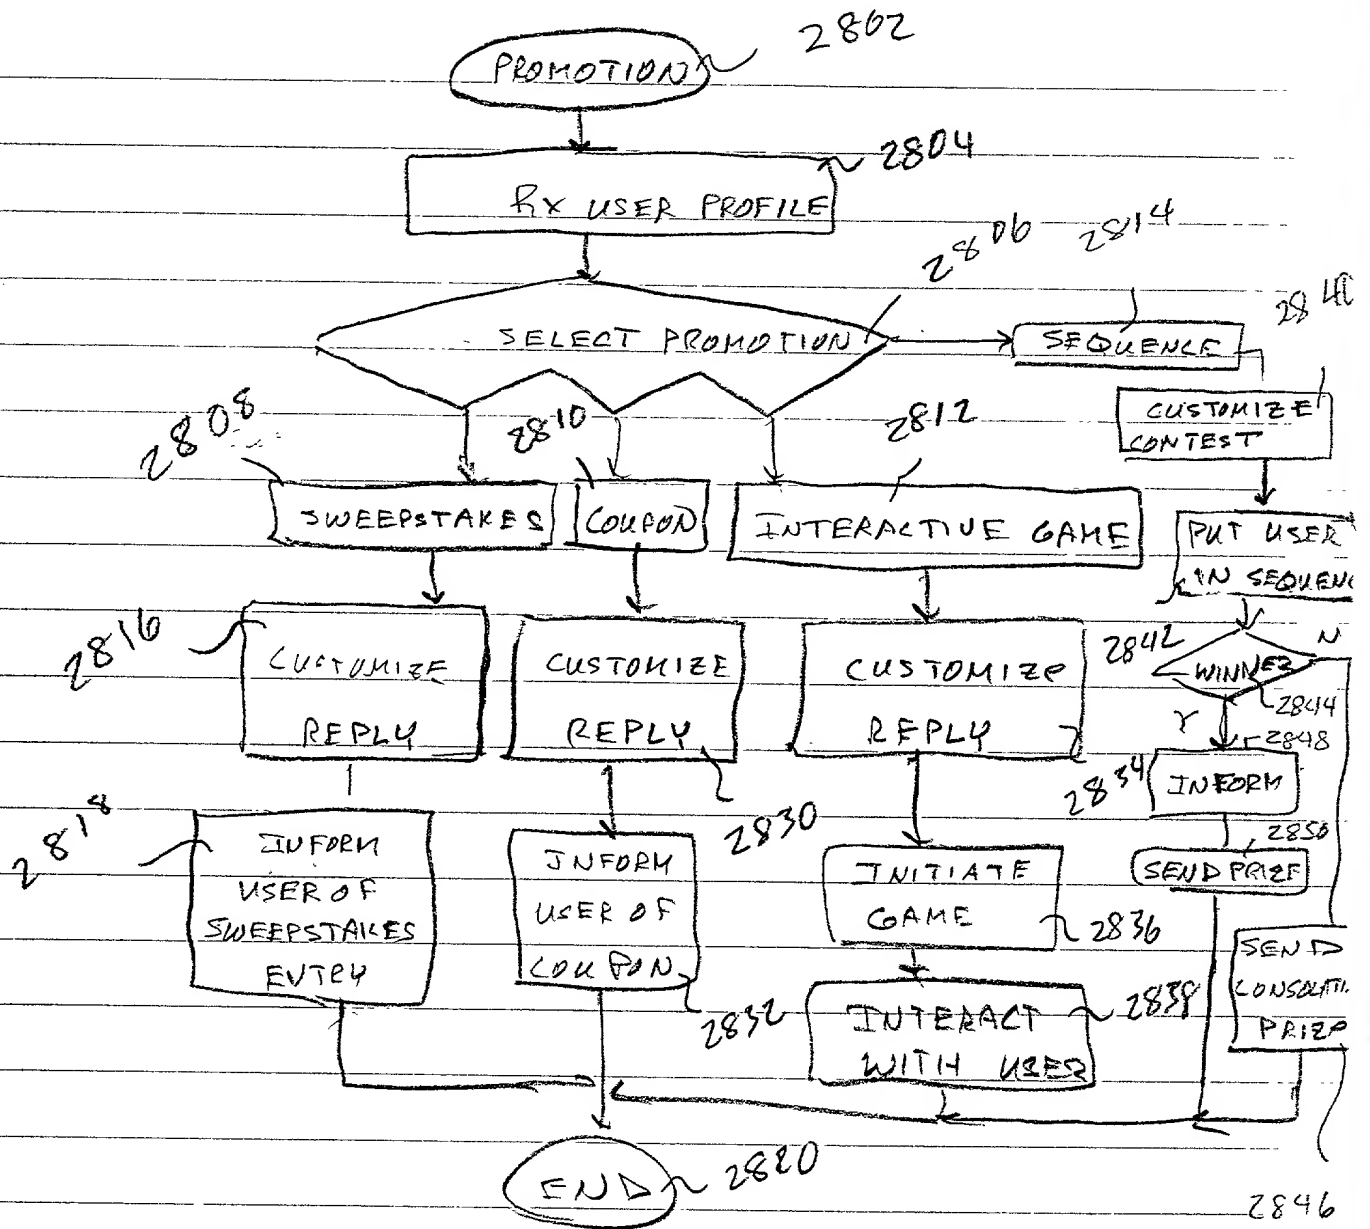 PROMOTION 2802
2804
Rx USER PROFILE
2806 2814
SELECT PROMOTION
SEQUENCE
CUSTOMIZE
CONTEST
2808 2810 2812
SWEEPSTAKES COUPON INTERACTIVE GAME
PUT USER
IN SEQUENC
2816
CUSTOMIZE
REPLY
CUSTOMIZE
REPLY
2830
CUSTOMIZE
REPLY
2834
2842
WINNER N
2844
Y
2848
INFORM
2850
SEND PRIZE
2818
INFORM
USER OF
SWEEPSTAKES
ENTRY
INFORM
USER OF
COUPON
2832
INITIATE
GAME
2836
INTERACT 2838
WITH USER
SEND
CONSOLATI
PRIZE
END 2820
2846